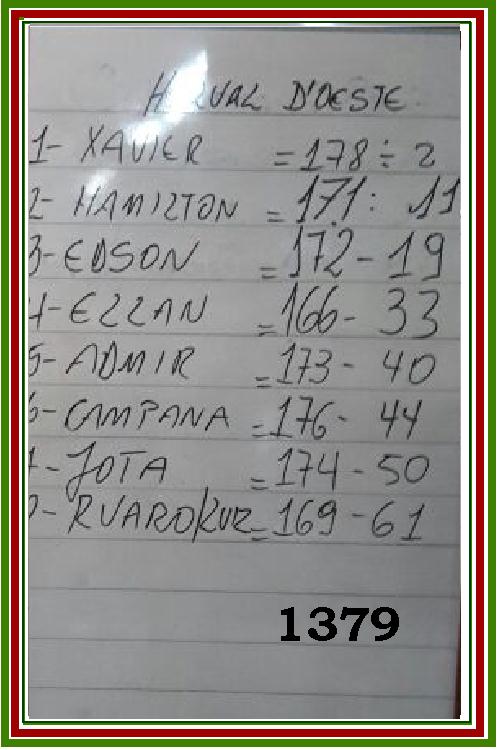 D'OESTE
1- XAVIER = 178 ÷ 2
2- HAMILTON = 171: 11
3- EDSON = 172 - 19
4- EZZAN = 166 - 33
5- ADMIR = 173 - 40
6- CAMPANA = 176 - 44
7- JOTA = 174 - 50
= 169 - 61
1379